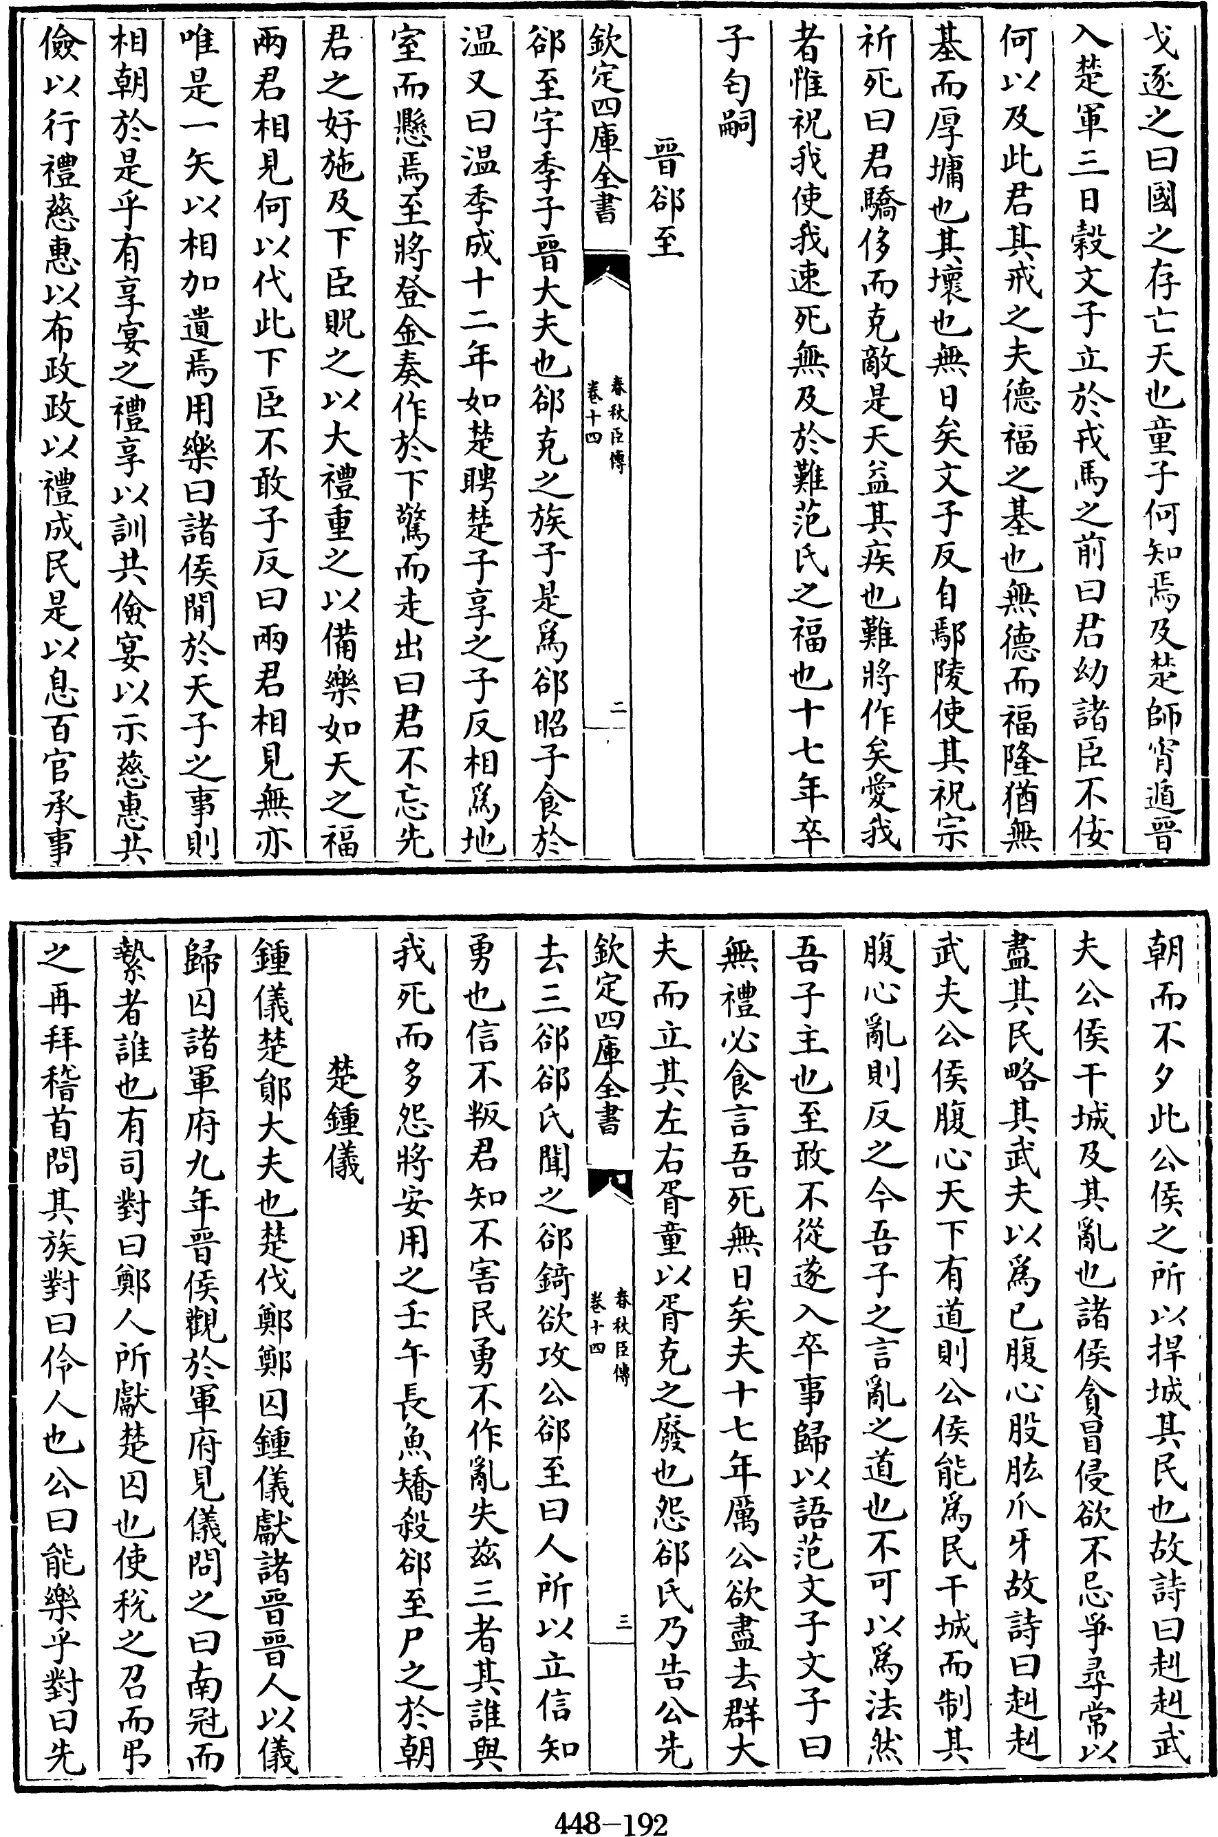 戈逐之曰國之存亡天也童子何知焉及楚師宵遁晉
入楚軍三日穀文子立於戎馬之前曰君幼諸臣不佞
何以及此君其戒之夫德福之基也無德而福隆猶無
基而厚墉也其壞也無日矣文子反自鄢陵使其祝宗
祈死曰君驕侈而克敵是天益其疾也難將作矣愛我
者惟祝我使我速死無及於難范氏之福也十七年卒
子匄嗣
晉郤至
欽定四庫全書
春秋臣傳
卷十四
二
郤至字季子晉大夫也郤克之族子是爲郤昭子食於
温又曰温季成十二年如楚聘楚子享之子反相爲地
室而懸焉至將登金奏作於下驚而走出曰君不忘先
君之好施及下臣貺之以大禮重之以備樂如天之福
兩君相見何以代此下臣不敢子反曰兩君相見無亦
唯是一矢以相加遺焉用樂曰諸侯閒於天子之事則
相朝於是乎有享宴之禮享以訓共儉宴以示慈惠共
儉以行禮慈惠以布政政以禮成民是以息百官承事
朝而不夕此公侯之所以捍城其民也故詩曰赳赳武
夫公侯干城及其亂也諸侯貪冒侵欲不忌爭尋常以
盡其民略其武夫以爲已腹心股肱爪牙故詩曰赳赳
武夫公侯腹心天下有道則公侯能爲民干城而制其
腹心亂則反之今吾子之言亂之道也不可以爲法然
吾子主也至敢不從遂入卒事歸以語范文子文子曰
無禮必食言吾死無日矣夫十七年厲公欲盡去群大
夫而立其左右胥童以胥克之廢也怨郤氏乃告公先
欽定四庫全書
春秋臣傳
卷十四
三
去三郤郤氏聞之郤錡欲攻公郤至曰人所以立信知
勇也信不叛君知不害民勇不作亂失兹三者其誰與
我死而多怨將安用之壬午長魚矯殺郤至尸之於朝
楚鍾儀
鍾儀楚鄖大夫也楚伐鄭鄭囚鍾儀獻諸晉晉人以儀
歸囚諸軍府九年晉侯觀於軍府見儀問之曰南冠而
縶者誰也有司對曰鄭人所獻楚囚也使稅之召而弔
之再拜稽首問其族對曰伶人也公曰能樂乎對曰先
448-192